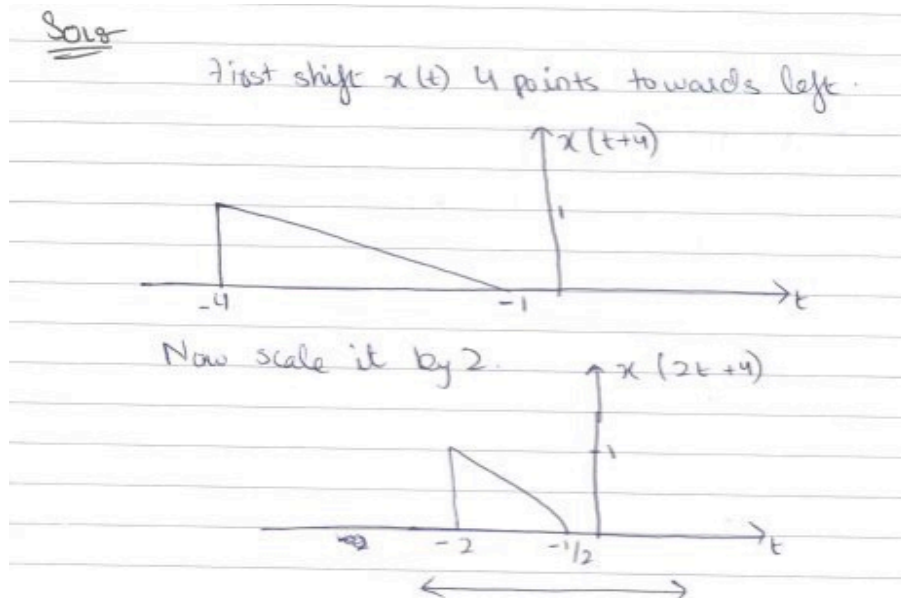 Sol:-
First shift x(t) 4 points towards left.
x(t+4)
1
-4
-1
t
Now scale it by 2.
x(2t+4)
1
-2
-1/2
t